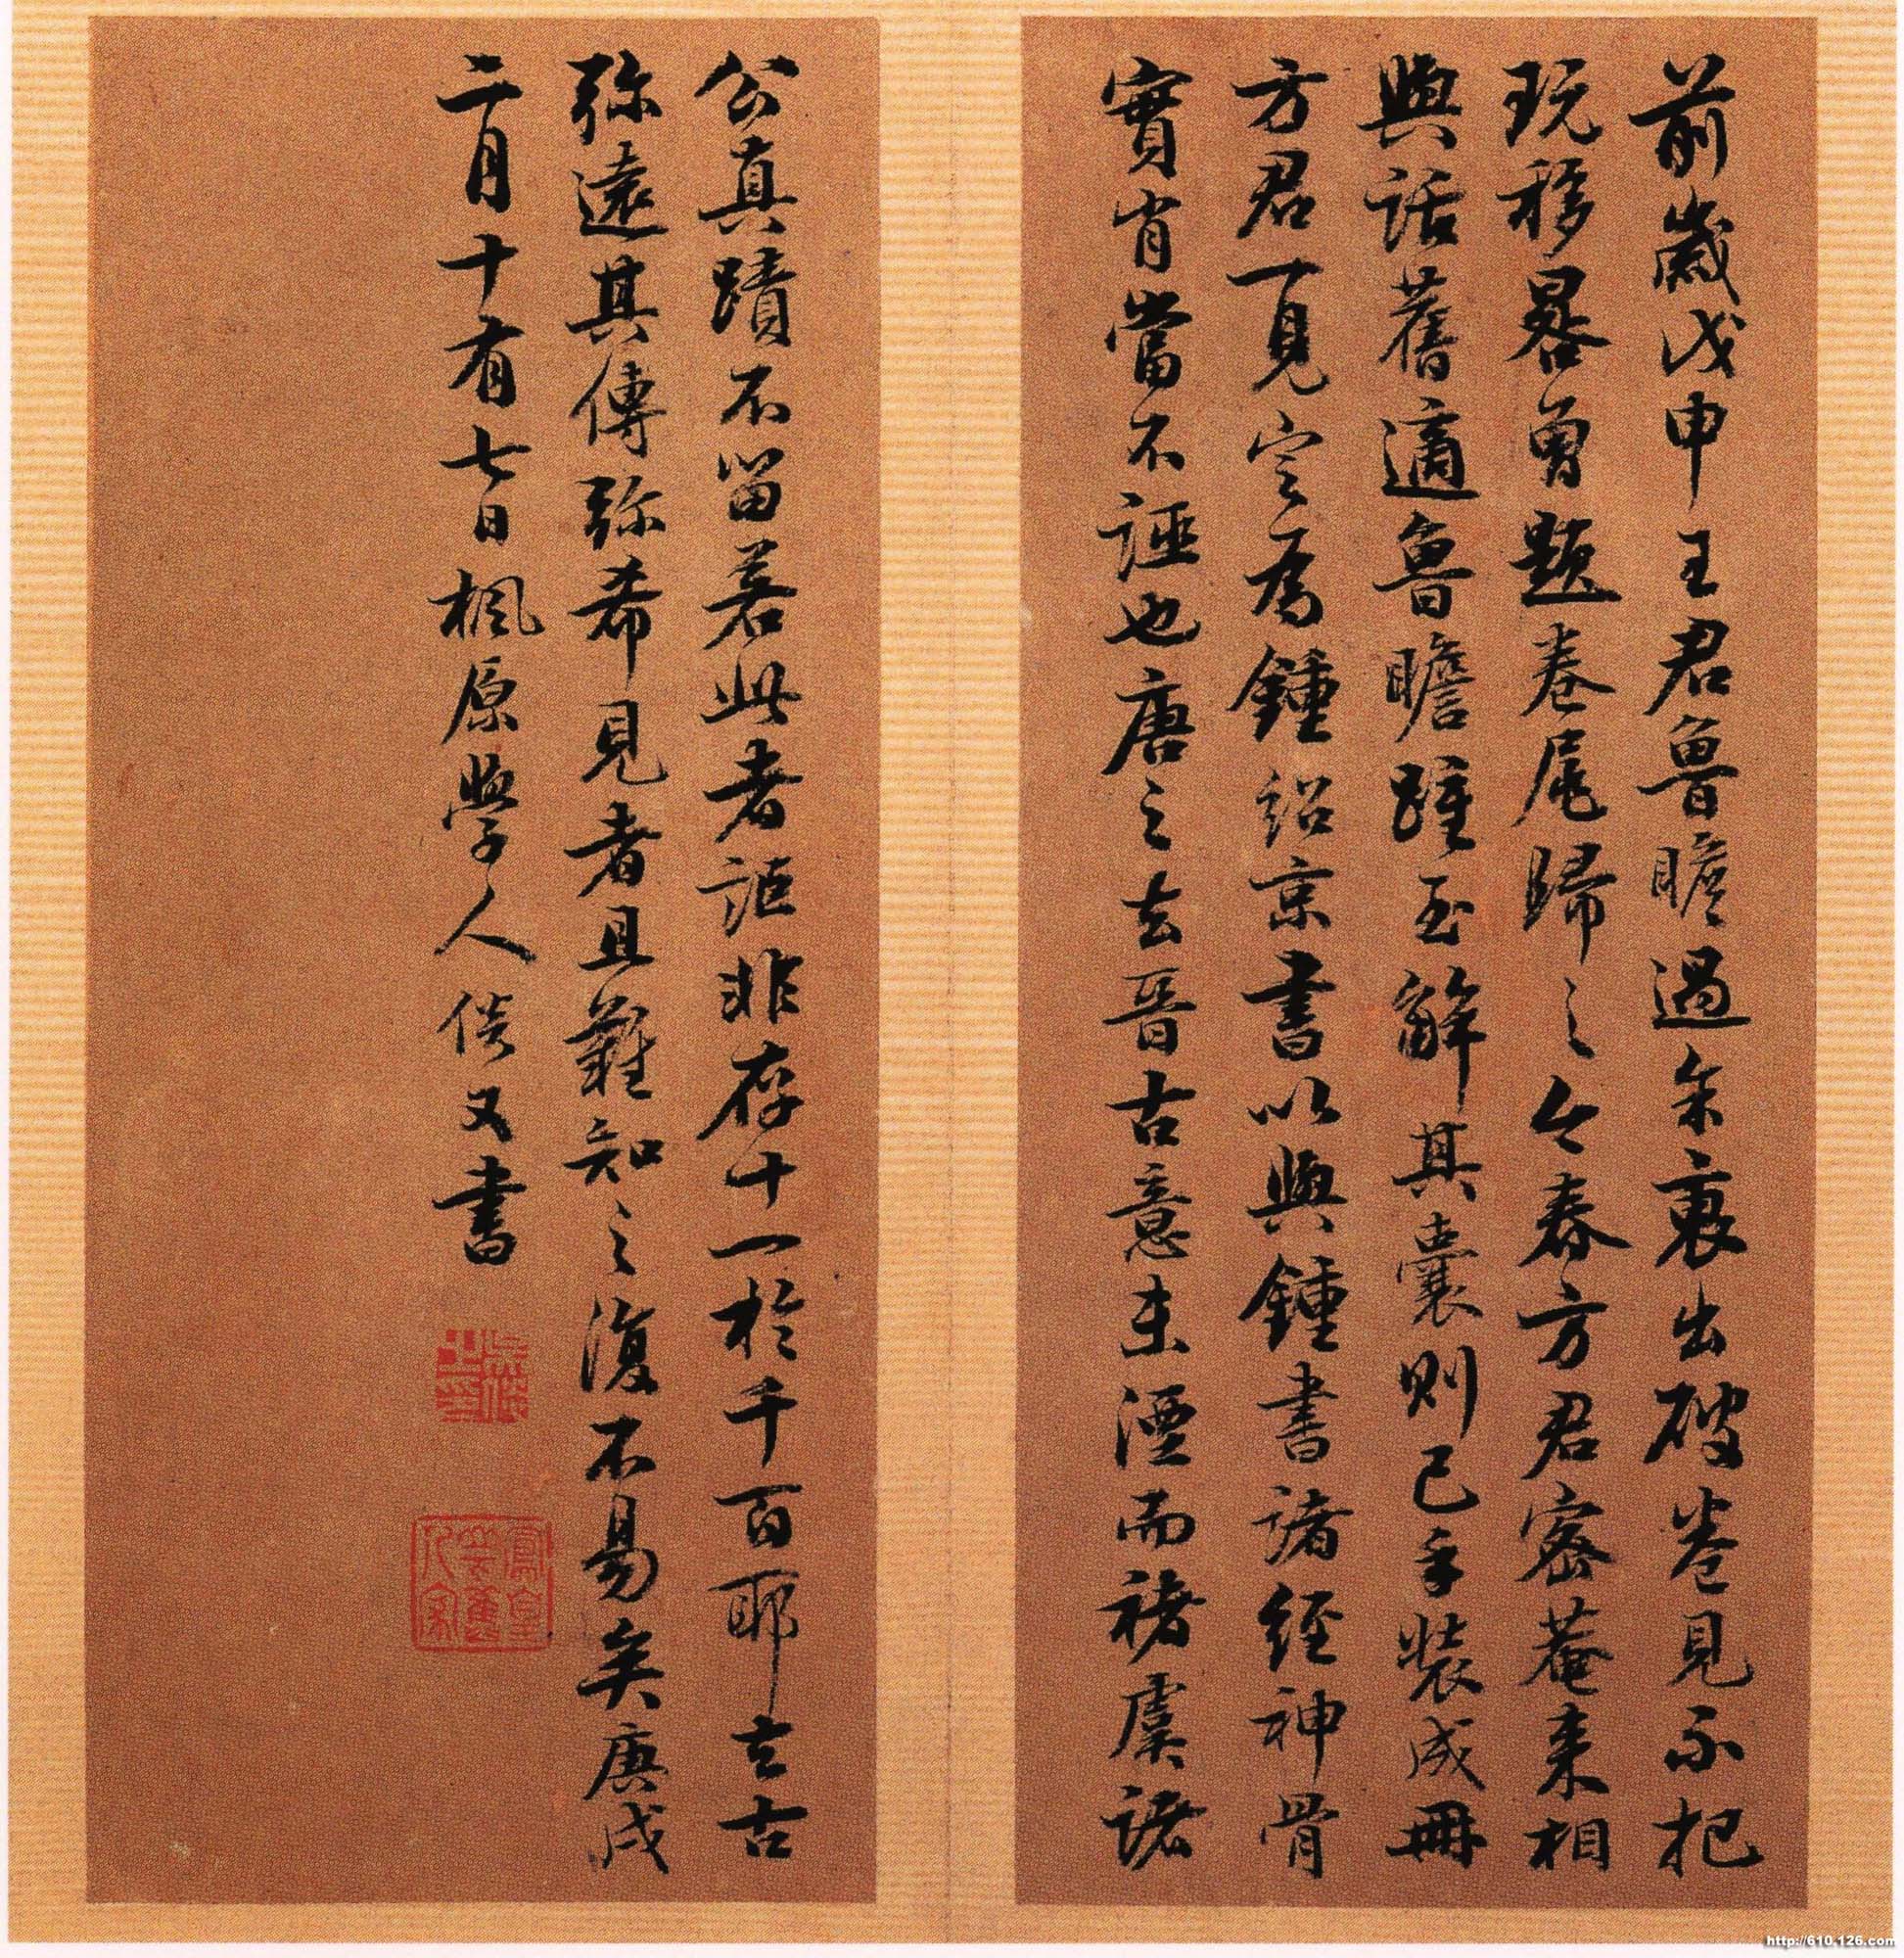 前歲戊申王君魯瞻過余裏出破卷見示把
玩移晷曾題卷尾歸之今春方君密菴來相
與話舊適魯瞻踵至解其囊則已手裝成冊
方君一見定為鍾紹京書以與鍾書諸經神骨
實肖當不誣也唐之去晉古意未湮而褚虞諸
公真蹟不留若此者詎非存十一於千百耶去古
弥遠其傳弥希見者且難知之復不易矣庚戌
二月十有七日楓原學人偀又書
之印
鳳皇
人家
http://610.126.com